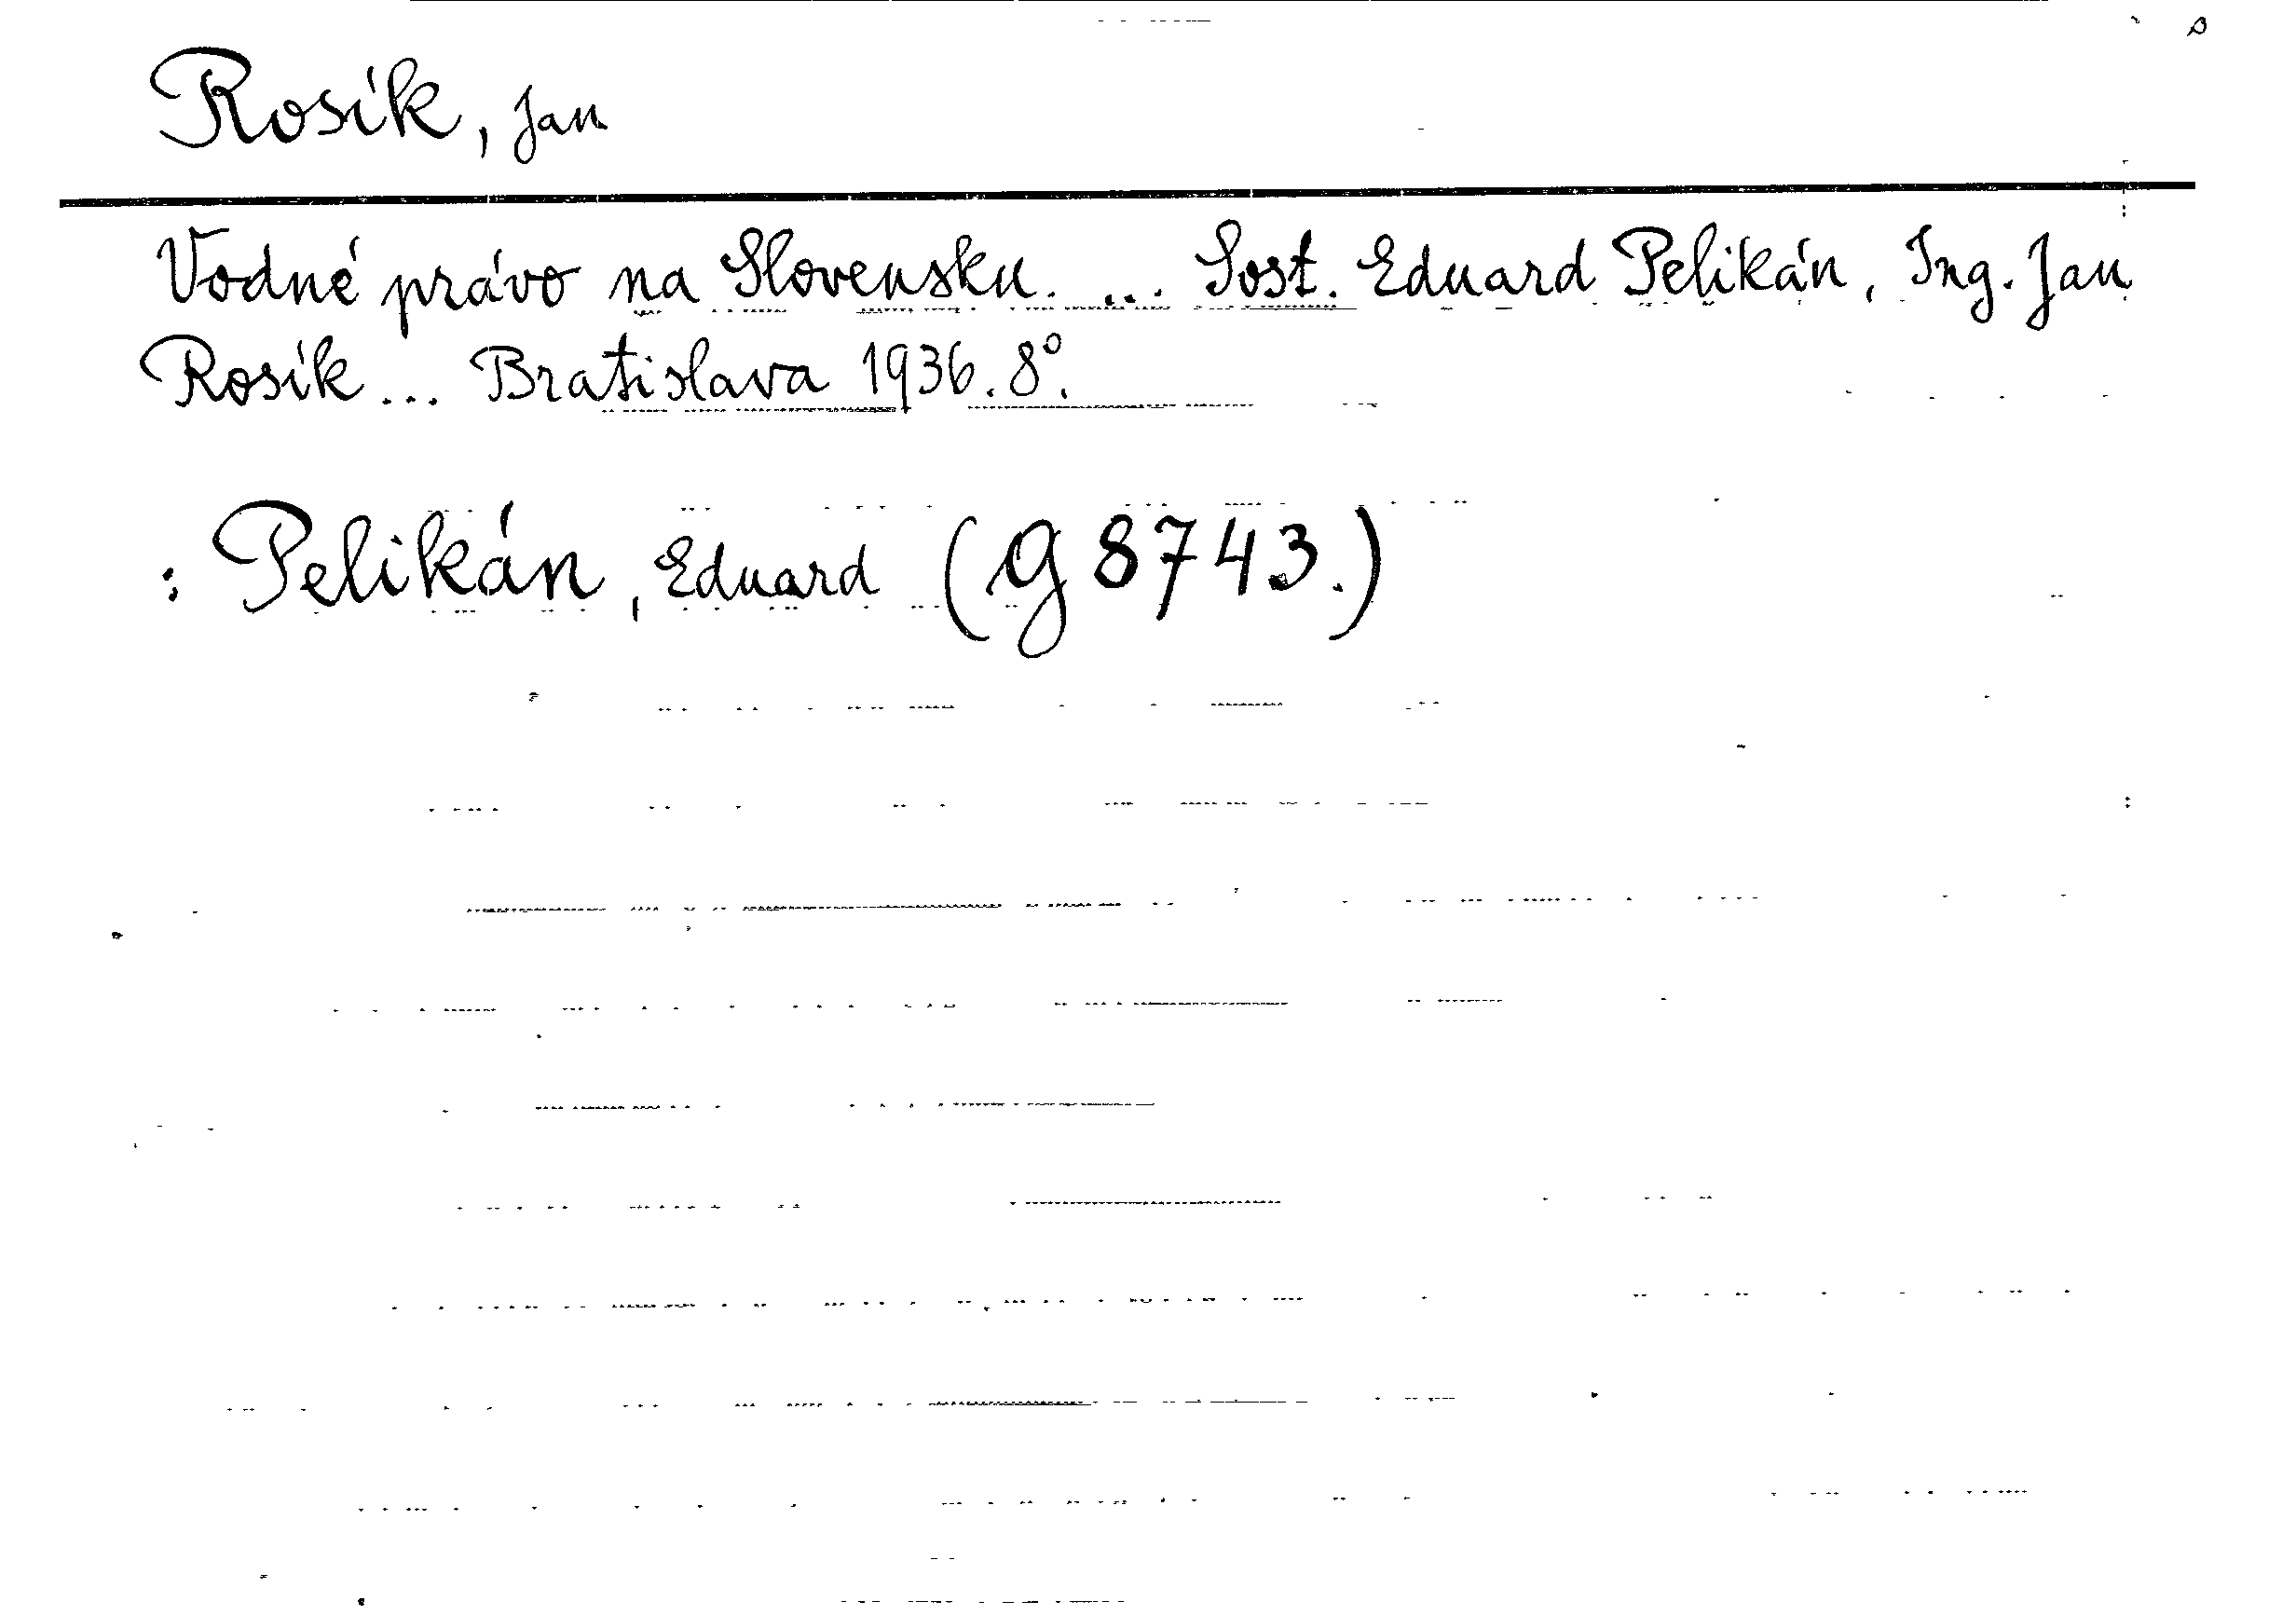 Rosík, Jan
Vodné právo na Slovensku. ... Sost. Eduard Pelikán, Ing. Jan
Rosík... Bratislava 1936. 8°.
: Pelikán, Eduard (g 8743.)